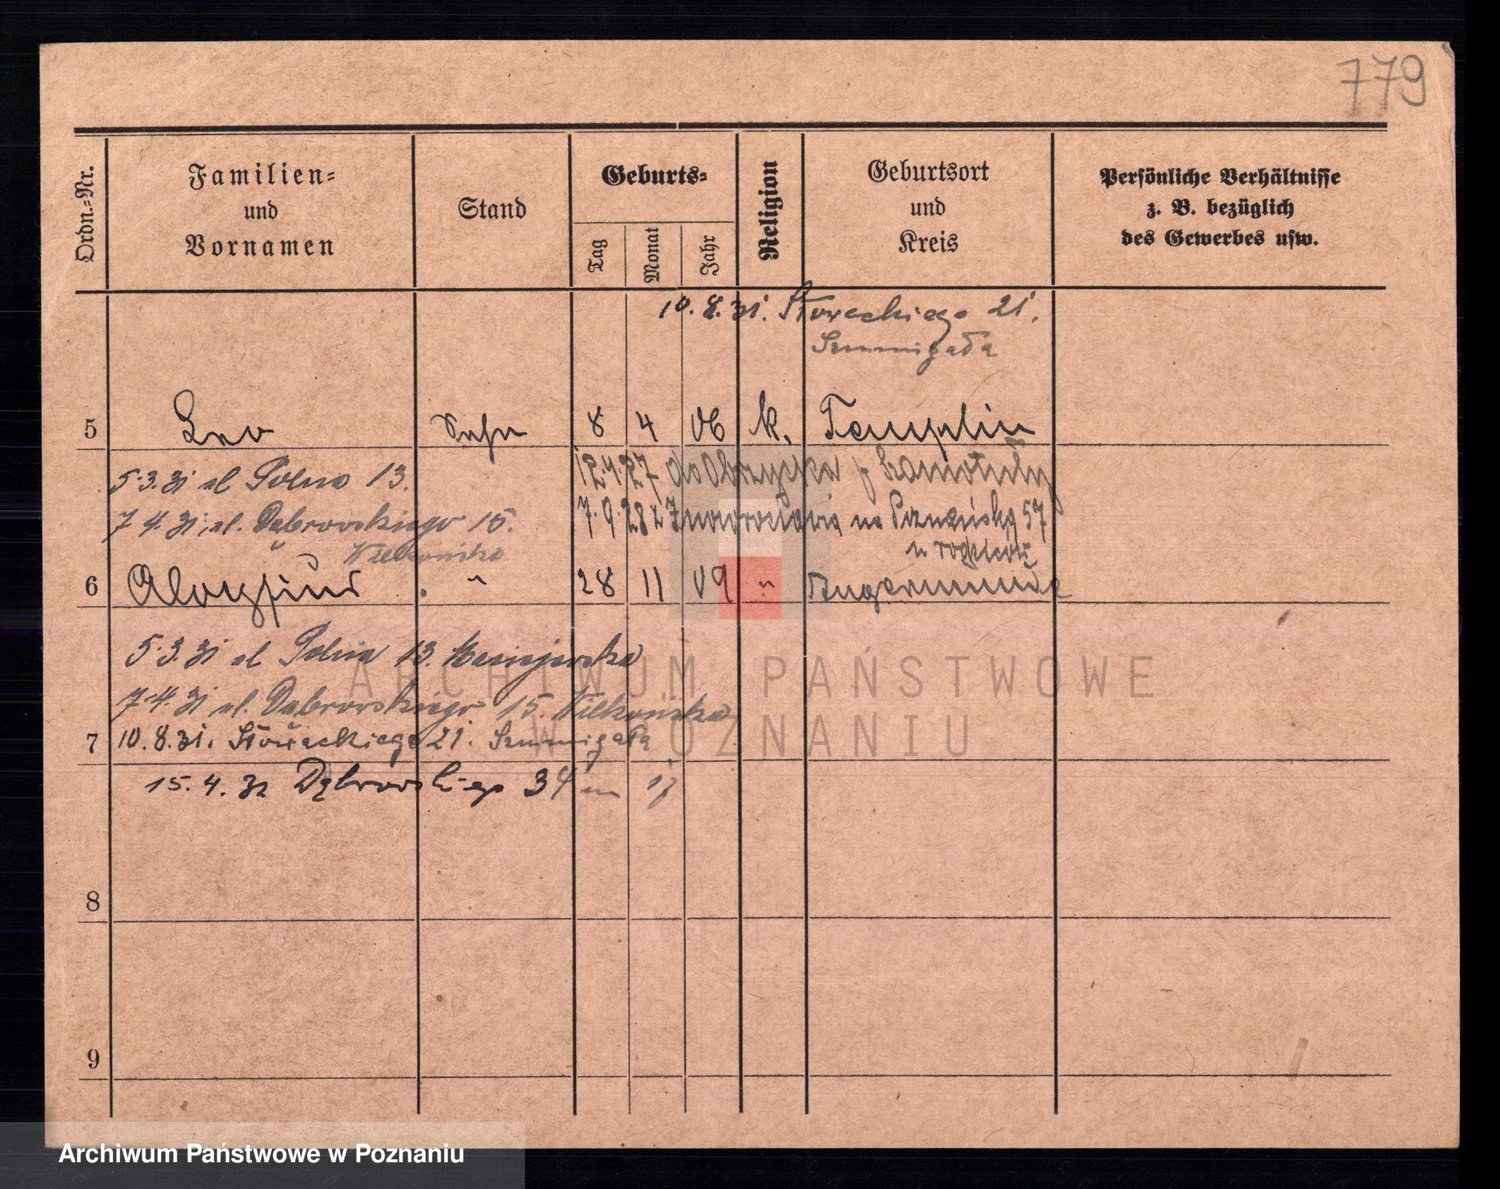 779
Ordn.-Nr.
Familien-
und
Vornamen
Stand
Geburts-
Tag
Monat
Jahr
Religion
Geburtsort
und
Kreis
Persönliche Verhältnisse
z. B. bezüglich
des Gewerbes usw.
10.8.31. Słowackiego 21.
5 Leo Sohn 8 4 06 k. Templin
5.3.31 ul Polna 13.
12.4.27 do Obrzycka p Szamotuły
7.4.31. ul. Dąbrowskiego 15.
7.9.28 z Inowrocławia na Poznańską 57
6 Aloysius " 28 11 09 " Angermünde
5.3.31 ul Polna 13.
7.4.31 ul. Dąbrowskiego 15.
7 10.8.31. Słowackiego 21.
15.4.32 Dąbrowskiego 34 m
8
9
ARCHIWUM PAŃSTWOWE
W POZNANIU
Archiwum Państwowe w Poznaniu